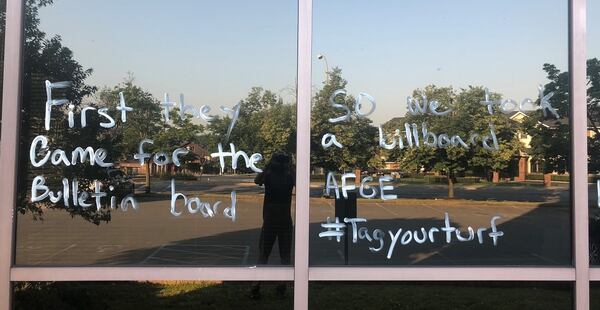 First they
Came for the
Bulletin board
So we took
a billboard
AFGE
#Tagyourturf